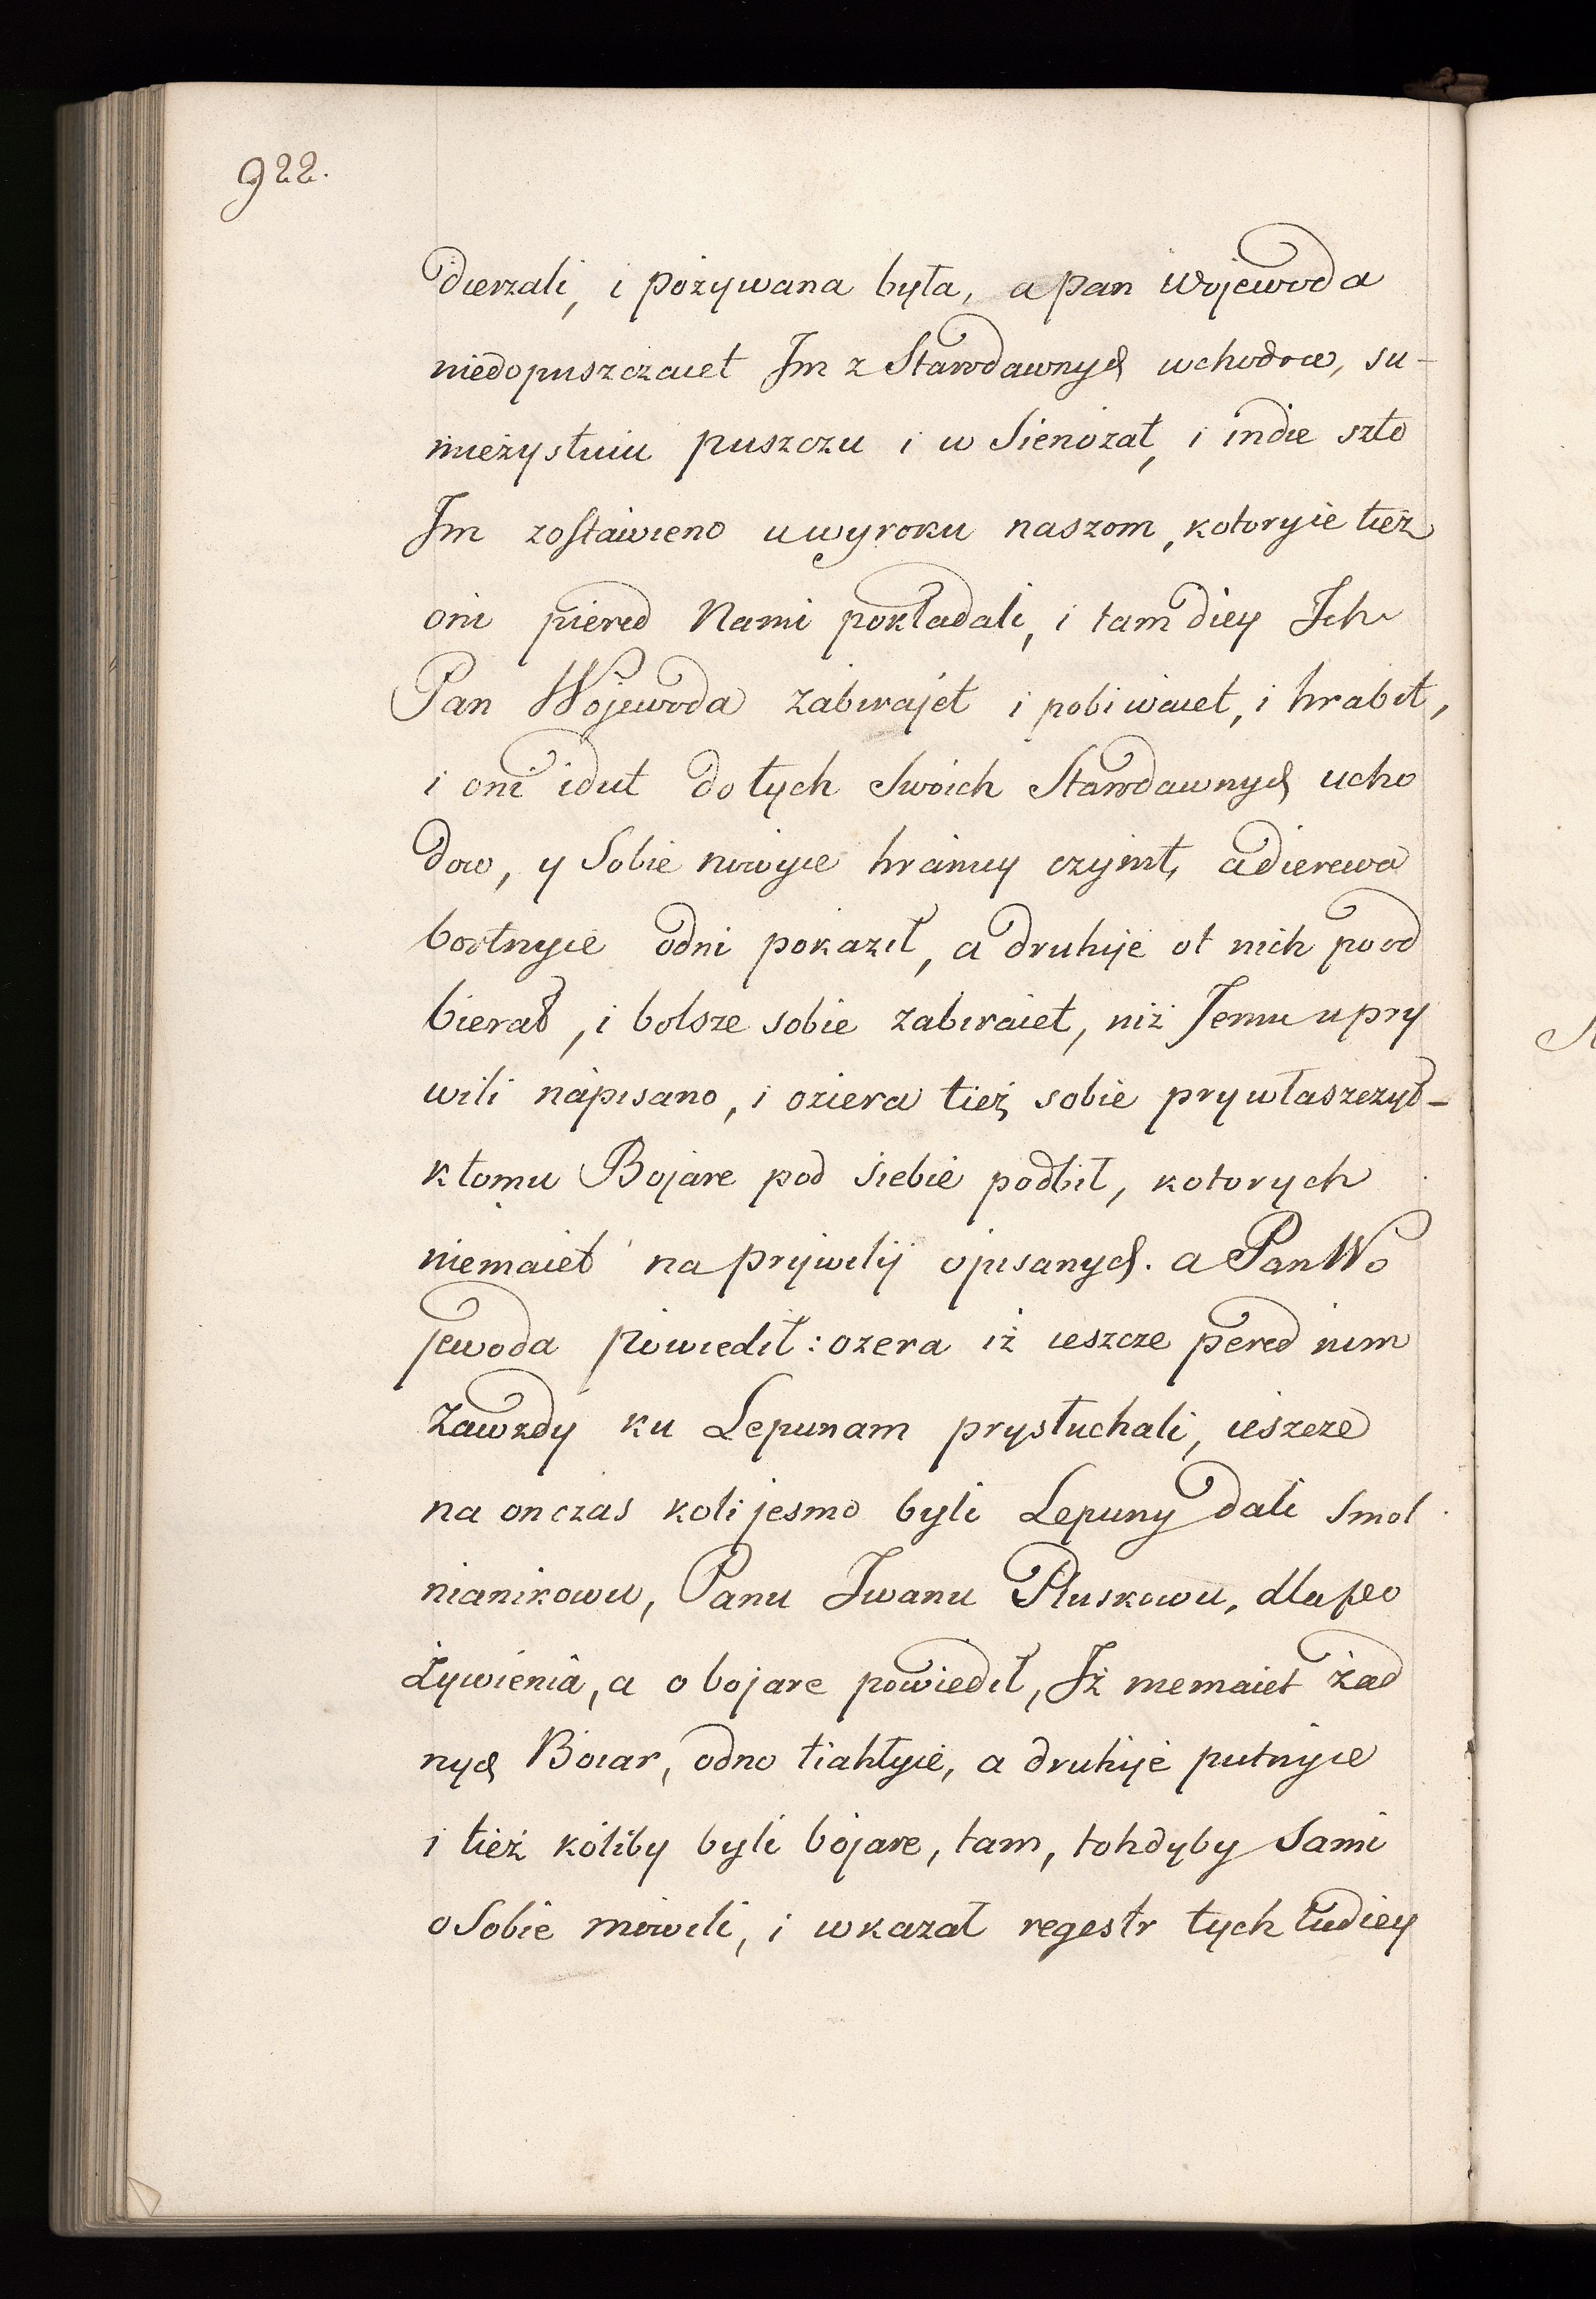 922.
dierzali, i pożywana była, a pan Wojewoda
niedopuszczaiet Jm z Starodawnych wchodow, su-
mieżystuiu puszczu i w Sienożat, i indie szto
Jm zostawieno u wyroku naszom, kotoryie tież
oni piered Nami pokładali, i tam diey Jch
Pan Wojewoda zabirajet i pobiwaiet, i hrabit,
i oni idut do tych Swoich Starodawnych ucho
dow, y Sobie nowyie hranicy czynit, a dierewa
bortnyie odni pokazil, a druhije ot nich pood
bierał, i bolsze sobie zabiraiet, niż Jemu u pry
wili napisano, i oziera tież sobie prywłaszczył-
ktomu Bojare pod siebie podbił, kotorych
niemaiet na prijwilij opisanych. a Pan Wo
jewoda powiedił: ozera iż ieszcze pered nim
zawżdy ku Lepunam prysłuchali, ieszcze
na onczas koli jesmo byli Lepuny dali Smol
nianikowu, Panu Jwanu Pluskowu, dla po
Żywienia, a o bojare powiedił, Jż niemaiet żad
nych Boiar, odno tiahłyie, a druhije putnyie
i tież koliby byli bojare, tam, tohdyby Sami
o Sobie mowili, i wkazał regestr tych ludiey